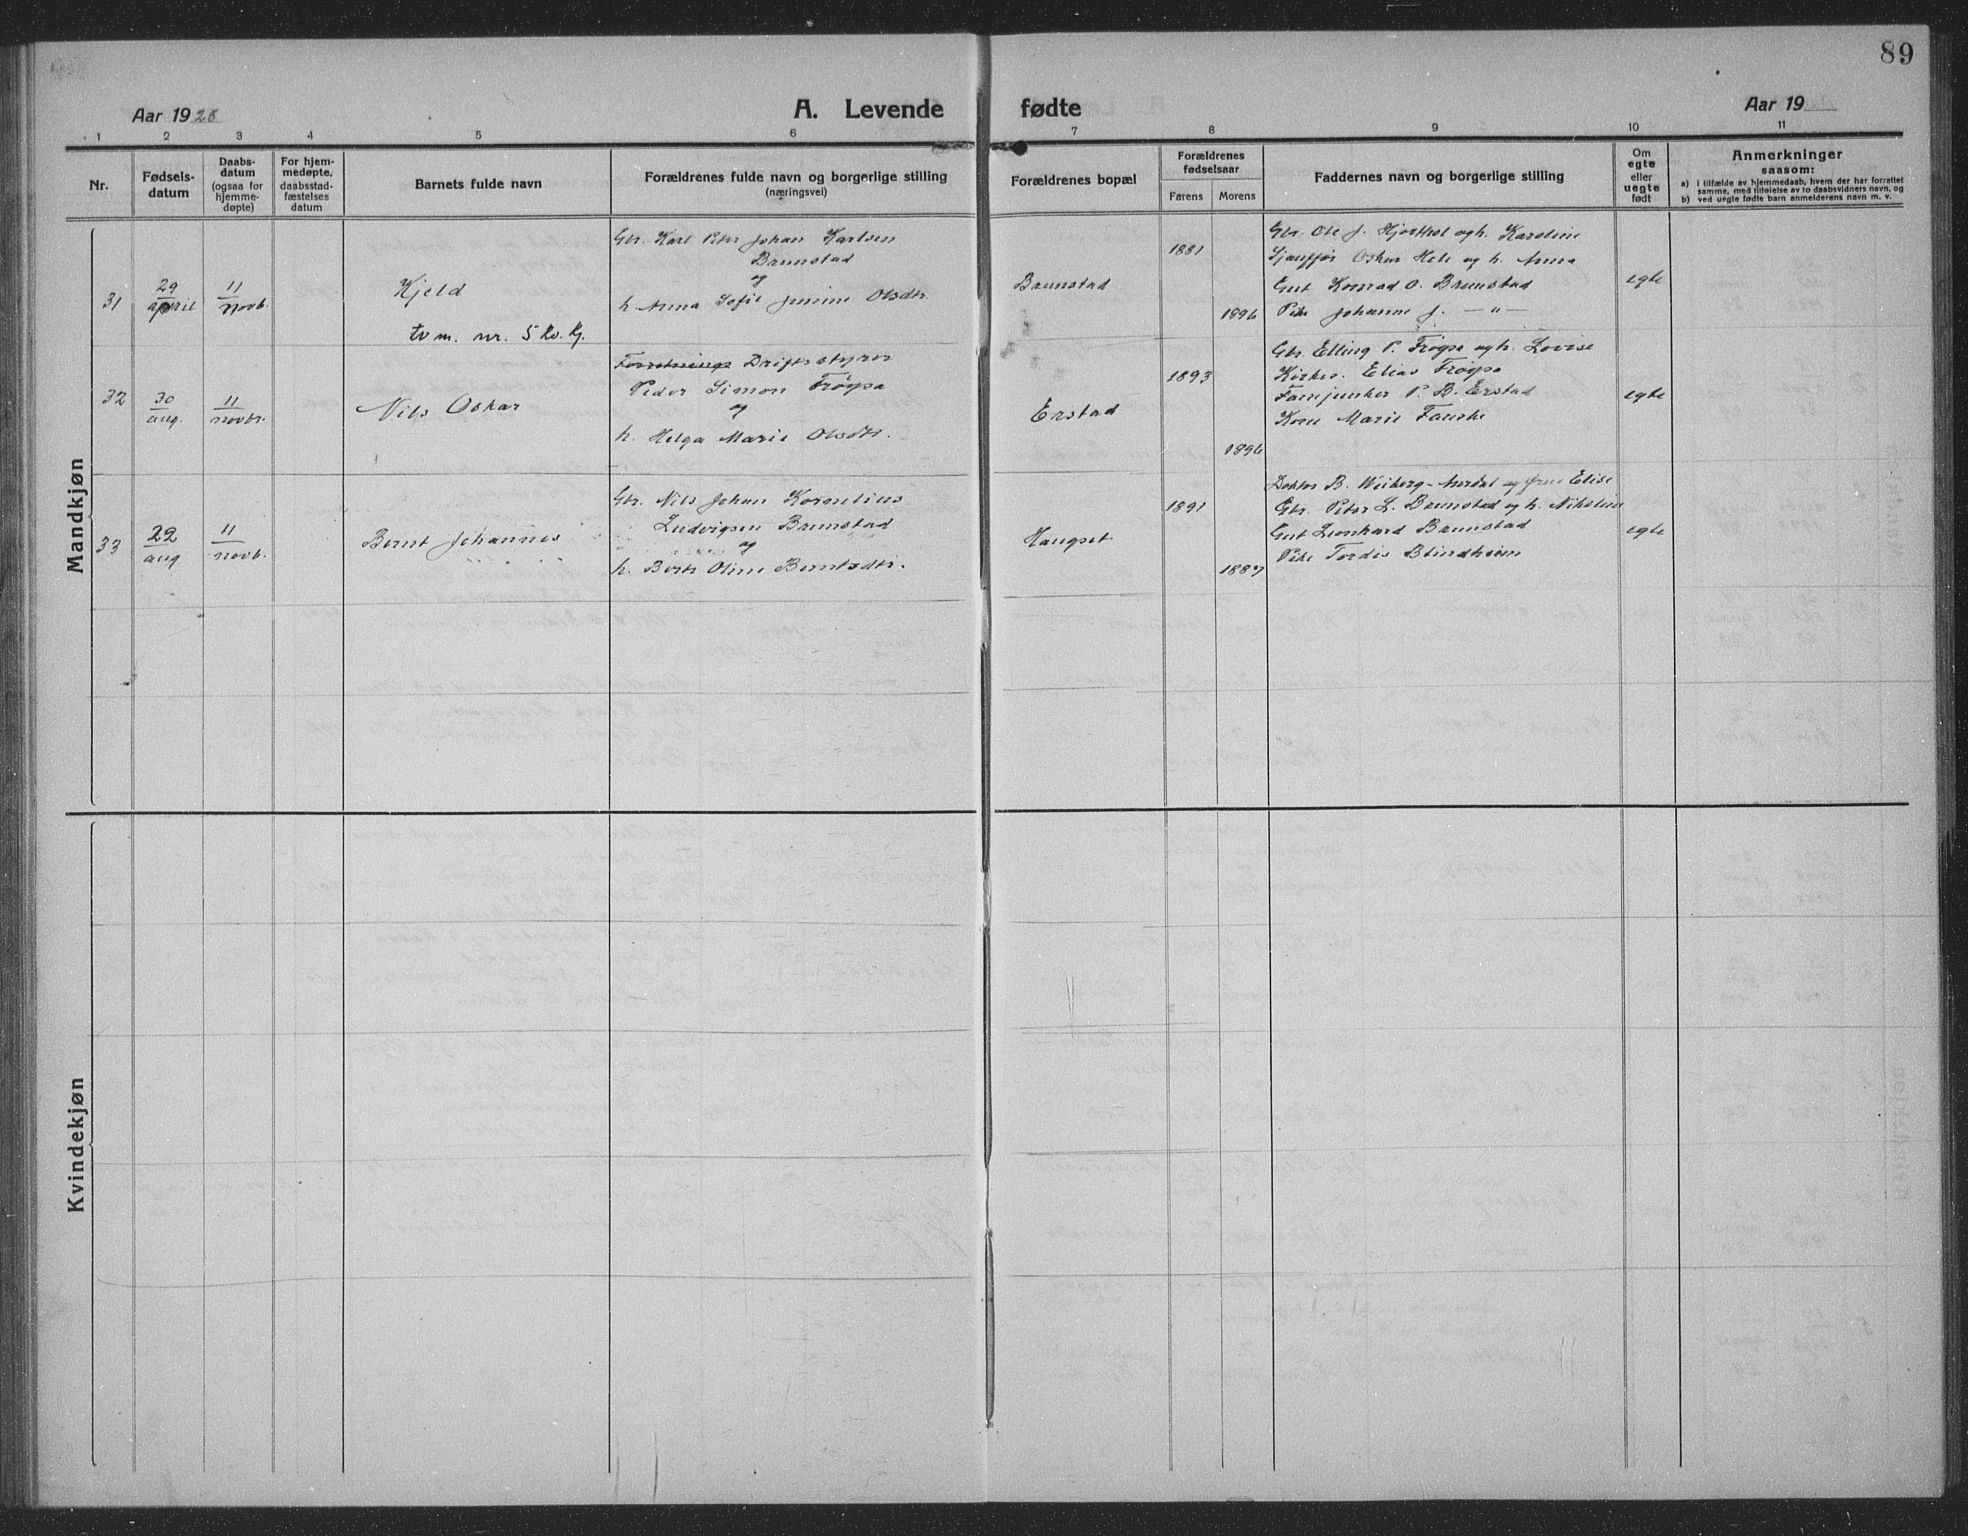 89
Aar 1928 A. Levende fødte Aar 19
1 2 3 4 5 6 7 8 9 10 11
Nr.
Fødsels-
datum
Daabs-
datum
(ogsaa for
hjemme-
døpte)
For hjem-
medøpte,
daabsstad-
fæstelses
datum
Barnets fulde navn
Forældrenes fulde navn og borgerlige stilling
(næringsvei)
Forældrenes bopæl
Forældrenes
fødselsaar
Farens Morens
Faddernes navn og borgerlige stilling
Om
egte
eller
uegte
født
Anmerkninger
saasom:
a) i tilfælde av hjemmedaab, hvem der har forrettet
samme, med tilføielse av to daabsvidners navn, og
b) ved uegte fødte barn anmelderens navn m. v.
Mandkjøn
31
29
april
11
novb.
Kjeld
tv m. nr. 5 kv. kj.
Gbr. Karl Peter Johan Karlsen
Brunstad
og
h. Anna Sofie Jensine Olsdtr.
Brunstad
1881
1896
Gbr. Ole J. Hjorthol og h. Karoline
Sjauffør Oskar Hole og h. Anna
Gut Konrad O. Brunstad
Pike Johanne J. — " —
egte
32
30
aug.
11
novbr.
Nils Oskar
Forretnings Driftsstyrer
Peder Simon Frøysa
og
h. Helga Marie Olsdtr.
Erstad
1893
1896
Gbr. Elling P. Frøysa og h. Lovise
Kirkes. Elias Frøysa
Fanejunker P. B. Erstad
Kone Marie Fauske
egte
33
22
aug
11
novb.
Bernt Johannes
Gbr. Nils Johan Kornelius
Ludvigsen Brunstad
og
h. Berte Oline Berntsdtr.
Haugset
1891
1887
Doktor B. Weiberg-Aurdal og frue Elise
Gbr. Peter L. Brunstad og h. Nikoline
Gut Leonhard Brunstad
Pike Tordis Blindheim
egte
Kvindekjøn